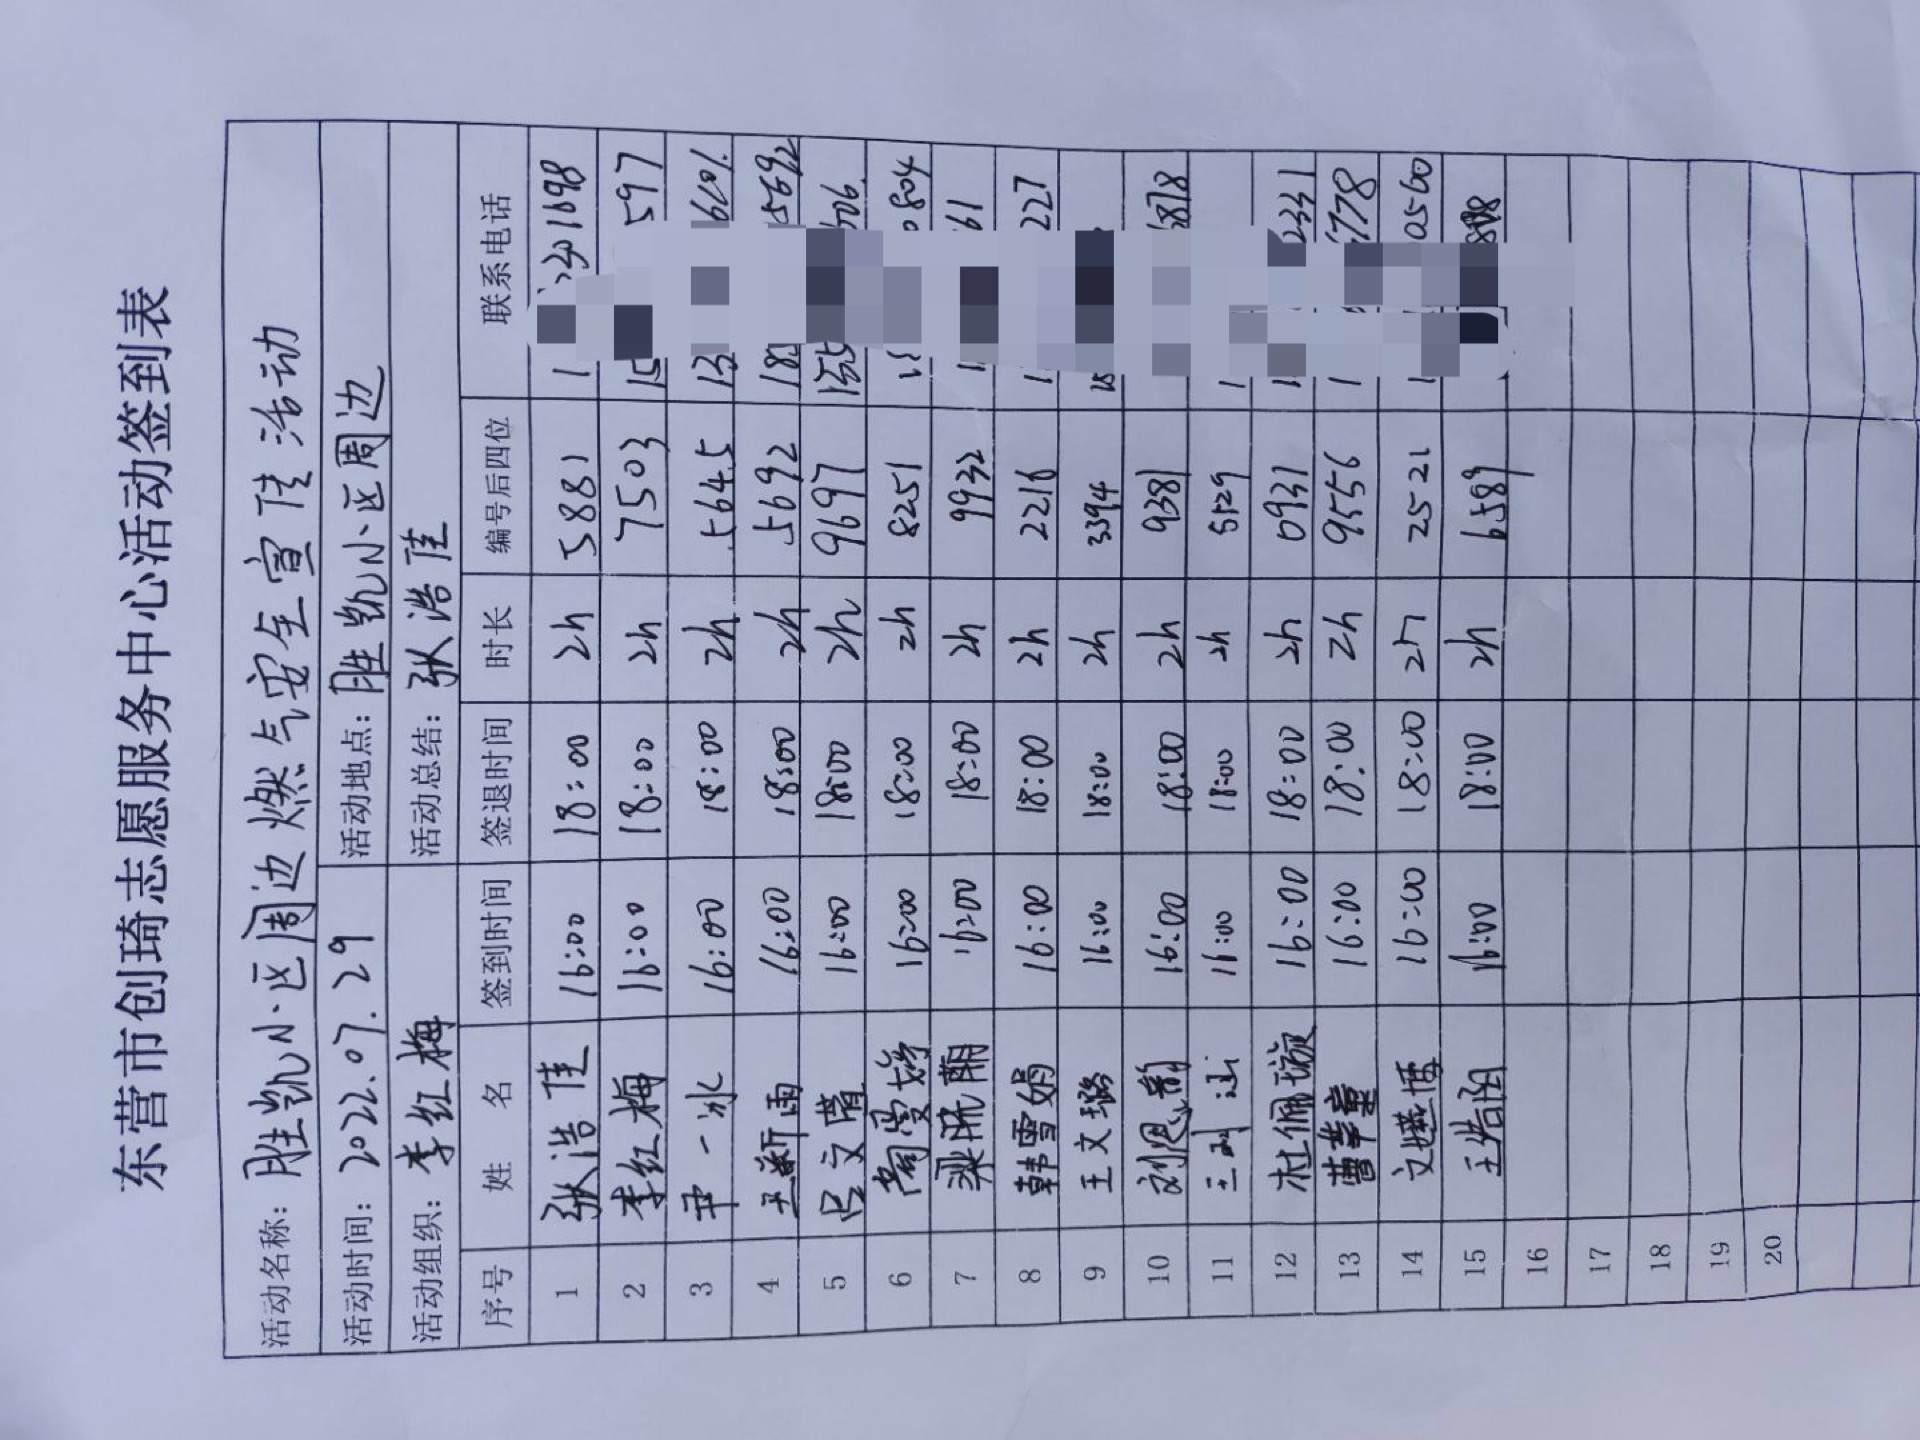 东营市创琦志愿服务中心活动签到表
活动名称: 胜凯小区周边燃气安全宣传活动
活动时间: 2022.07.29 活动地点: 胜凯小区周边
活动组织: 李红梅 活动总结: 张浩佳
序号 姓 名 签到时间 签退时间 时长 编号后四位 联系电话
1 张浩佳 16:00 18:00 2h 5881 1 1698
2 李红梅 16:00 18:00 2h 7503 15 597
3 尹一冰 16:00 18:00 2h 5645 13
4 16:00 18:00 2h 5692 18 5692
5 吕文蕾 16:00 18:00 2h 9697 155 606
6 16:00 18:00 2h 8251 0804
7 16:00 18:00 2h 9932 1 61
8 韩雪娟 16:00 18:00 2h 2216 1 227
9 王文璐 16:00 18:00 2h 3394 15
10 16:00 18:00 2h 9381 6878
11 16:00 18:00 2h 1
12 杜佩璇 16:00 18:00 2h 0931 1 2331
13 曹華童 16:00 18:00 2h 9556 1 6778
14 16:00 18:00 2h 2521 1 0560
15 16:00 18:00 2h 6589
16
17
18
19
20